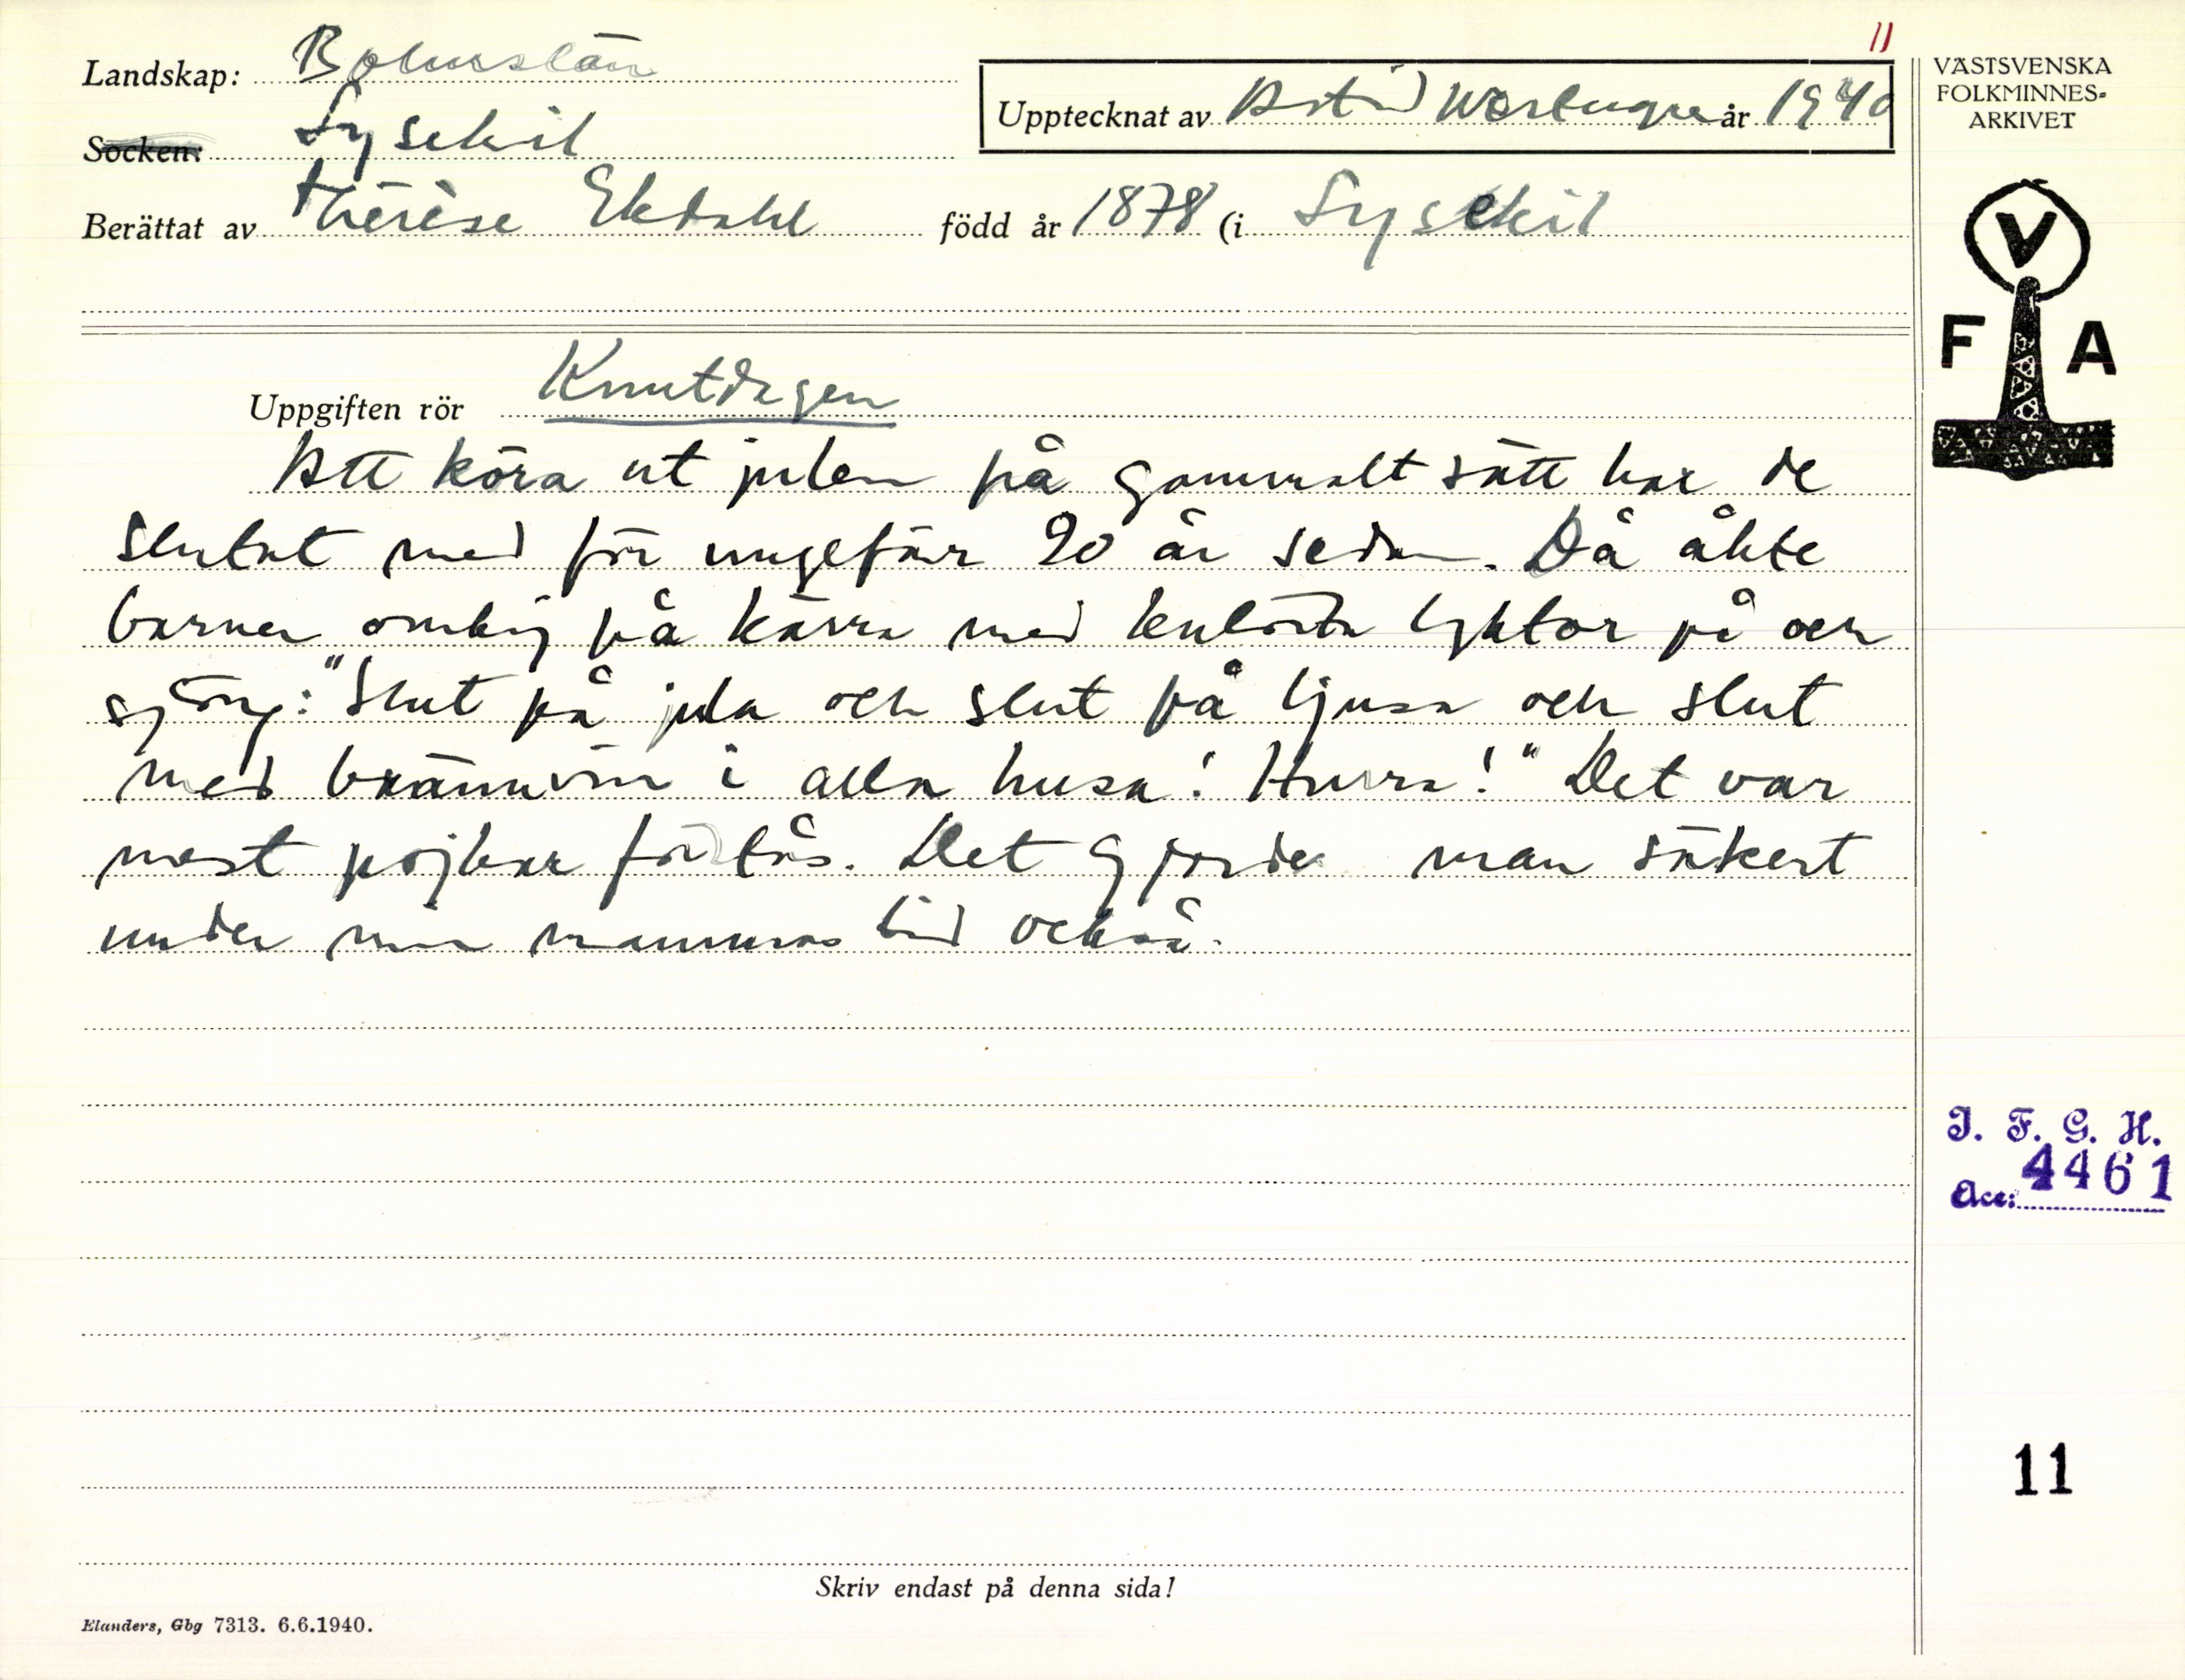 11
Landskap: Bohuslän
Upptecknat av Astrid år 1940
Socken: Lysekil
Berättat av Thérèse Ekdahl född år 1878 (i Lysekil
VÄSTSVENSKA
FOLKMINNES-
ARKIVET
V
F A
Uppgiften rör Knutdagen
Att köra ut julen på gammalt sätt har de
slutat med för ungefär 20 år sedan. Då åkte
barnen omkring på kärra med kulörta lyktor på och
sjöng: "Slut på jula och slut på ljusa och slut
med brännvin i alla husa! Hurra!" Det var
mest pojkar förstås. Det gjorde man säkert
under min mammas tid också.
I. F. G. H.
Acc: 4461
11
Skriv endast på denna sida!
Elanders, Gbg 7313. 6.6.1940.